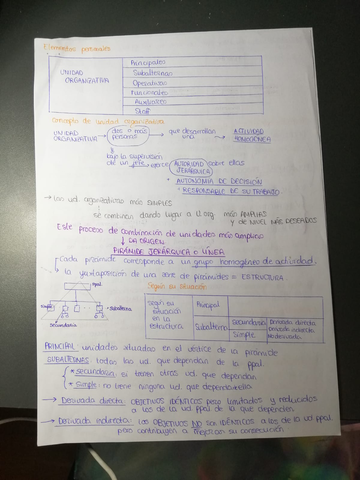 Elementos personales
UNIDAD ORGANIZATIVA
Principales
Subalternas
Operativas
Funcionales
Auxiliares
Staff
Concepto de unidad organizativa
UNIDAD ORGANIZATIVA
dos o más personas
que desarrollan una
ACTIVIDAD HOMOGÉNEA
bajo la supervisión
de un jefe
ejerce
AUTORIDAD JERÁRQUICA
sobre ellas
+ AUTONOMÍA DE DECISIÓN
+ RESPONSABLE DE SU TRABAJO
→ Las ud. organizativas más SIMPLES
se combinan dando lugar a U.org más AMPLIAS
y de NIVEL MÁS DESEADOS
Este proceso de combinación de unidades más amplias
↓ DA ORIGEN
PIRÁMIDE JERÁRQUICA O LÍNEA
Cada pirámide corresponde a un grupo homogéneo de actividad.
la yuxtaposición de una serie de pirámides = ESTRUCTURA
Según su situación
ppal
simples
Subalternas
Secundaria
según su situación en la estructura
Principal
Subalternas
Secundaria
Simple
Derivada directa
Derivada indirecta
No derivada
PRINCIPAL: unidades situadas en el vértice de la pirámide
SUBALTERNAS: todas las ud. que dependan de la ppal.
* secundaria: si tienen otras ud. que dependan
* simple: no tiene ninguna ud que dependa de ella
→ Derivada directa: OBJETIVOS IDÉNTICOS pero limitados y reducidos
a los de la ud. ppal de la que dependen
→ Derivada indirecta: los OBJETIVOS NO son IDÉNTICOS a los de la ud. ppal
pero contribuyen a mejorar su consecución